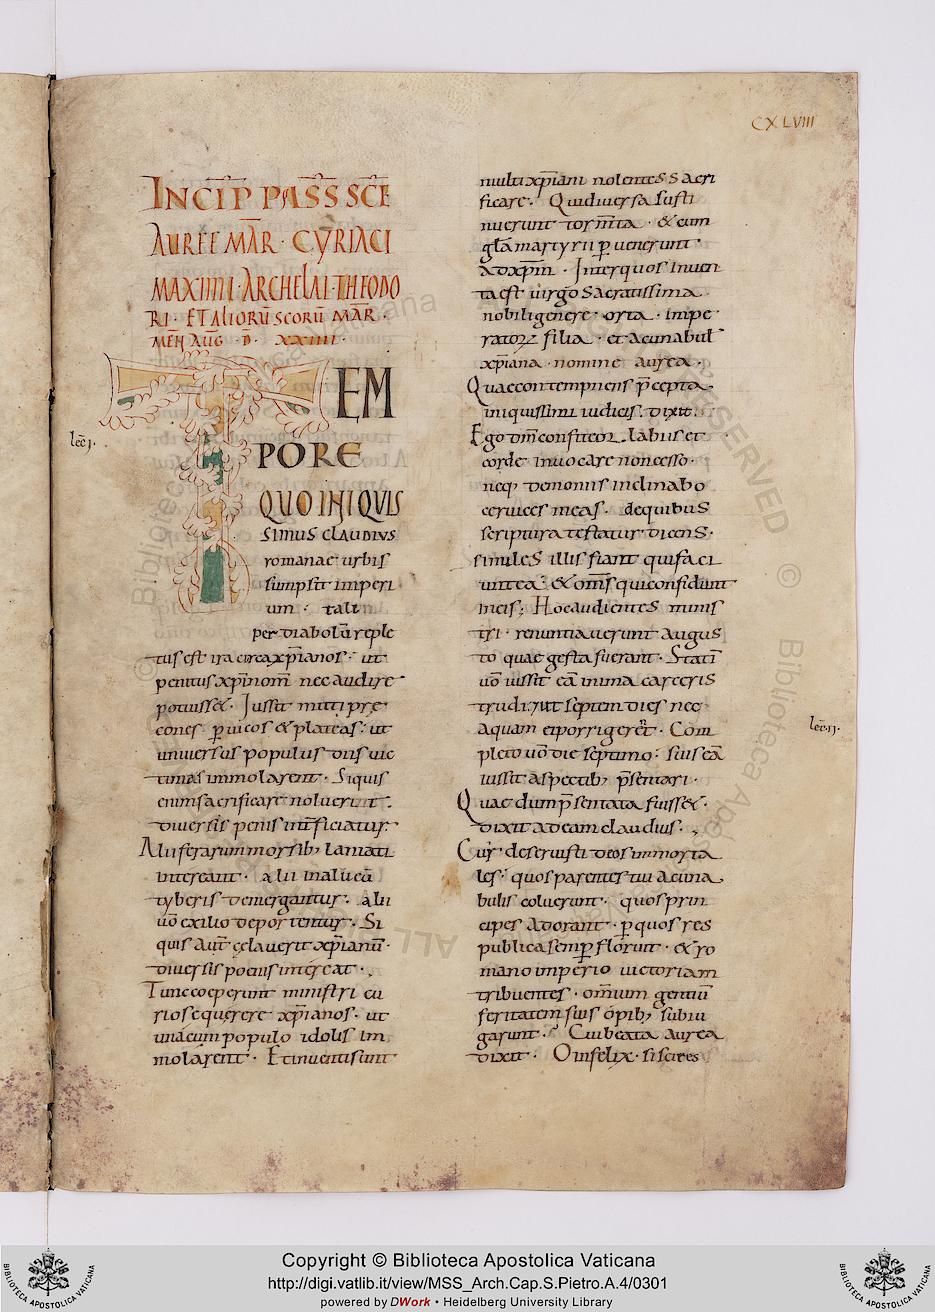 CXLVIII
INCIP PASS SCE
AUREE MAR · CYRIACI
MAXIMI · ARCHELAI · THEODO
RI · ET ALIORU SCORU MAR ·
MEN AUG D · XXIIII ·
TEM
lec j.
PORE
QUO INIQUIS
SIMUS CLAUDIUS
romanae urbis
sumpsit imperi
um · tali
per diabolu reple
tus est ira circa xpianos · ut
penitus xpi nom nec audire
potuisset · Iussit mitti pre
cones p uicos & plateas · ut
uniuersus populus diis uic
timas immolarent · Siquis
enim sacrificare noluerit ·
diuersis penis intficiatur ·
Alii ferarum morsib; laniati
intereant · alii in alueu
tyberis demergantur · alii
uo exilio deportentur · Si
quis aut celauerit xpianu ·
diuersis poenis intereat · ,
Tunc coeperunt ministri cu
riose querere xpianos · ut
una cum populo idolis im
molarent · Et inuenti sunt
multi xpiani nolentes sacri
ficare · Qui diuersa susti
nuerunt tormta · & cum
gla martyrii puenerunt
ad xpm · Inter quos inuen
ta est uirgo sacratissima
nobili genere orta · inpe
ratorz filia · et a cunabul
xpiana nomine aurea ·
Quae contempnens pcepta
iniquissimi iudicis · dixit ·
Ego dm confiteor · labiis et
corde inuocare non cesso ·
neq; demoniis inclinabo
ceruices meas · de quibus
scriptura testatur dicens ·
similes illis fiant qui faci
unt ea · & oms qui confidunt
in eis; Hoc audientes minis
tri · renuntiauerunt augus
to quae gesta fuerant · Stati
uo iussit ea in ima carceris
trudi · ut septem dies nec
aquam ei porrigeret · Com
lec ij.
pleto uo die septimo · suis ea
iussit aspectib; psentari ·
Quae dum psentata fuisset ·
dixit ad eam claudius · ,
Cur deseruisti deos inmorta
les · quos parentes tui a cuna
bulis coluerunt · quos prin
cipes adorant · p quos res
publica semp floruit · & ro
mano imperio uictoriam
tribuentes · omnium gentiu
feritatem suis opib; subiu
garunt · Cui beata aurea
dixit · O infelix · si scires
Copyright © Biblioteca Apostolica Vaticana
http://digi.vatlib.it/view/MSS_Arch.Cap.S.Pietro.A.4/0301
powered by DWork • Heidelberg University Library